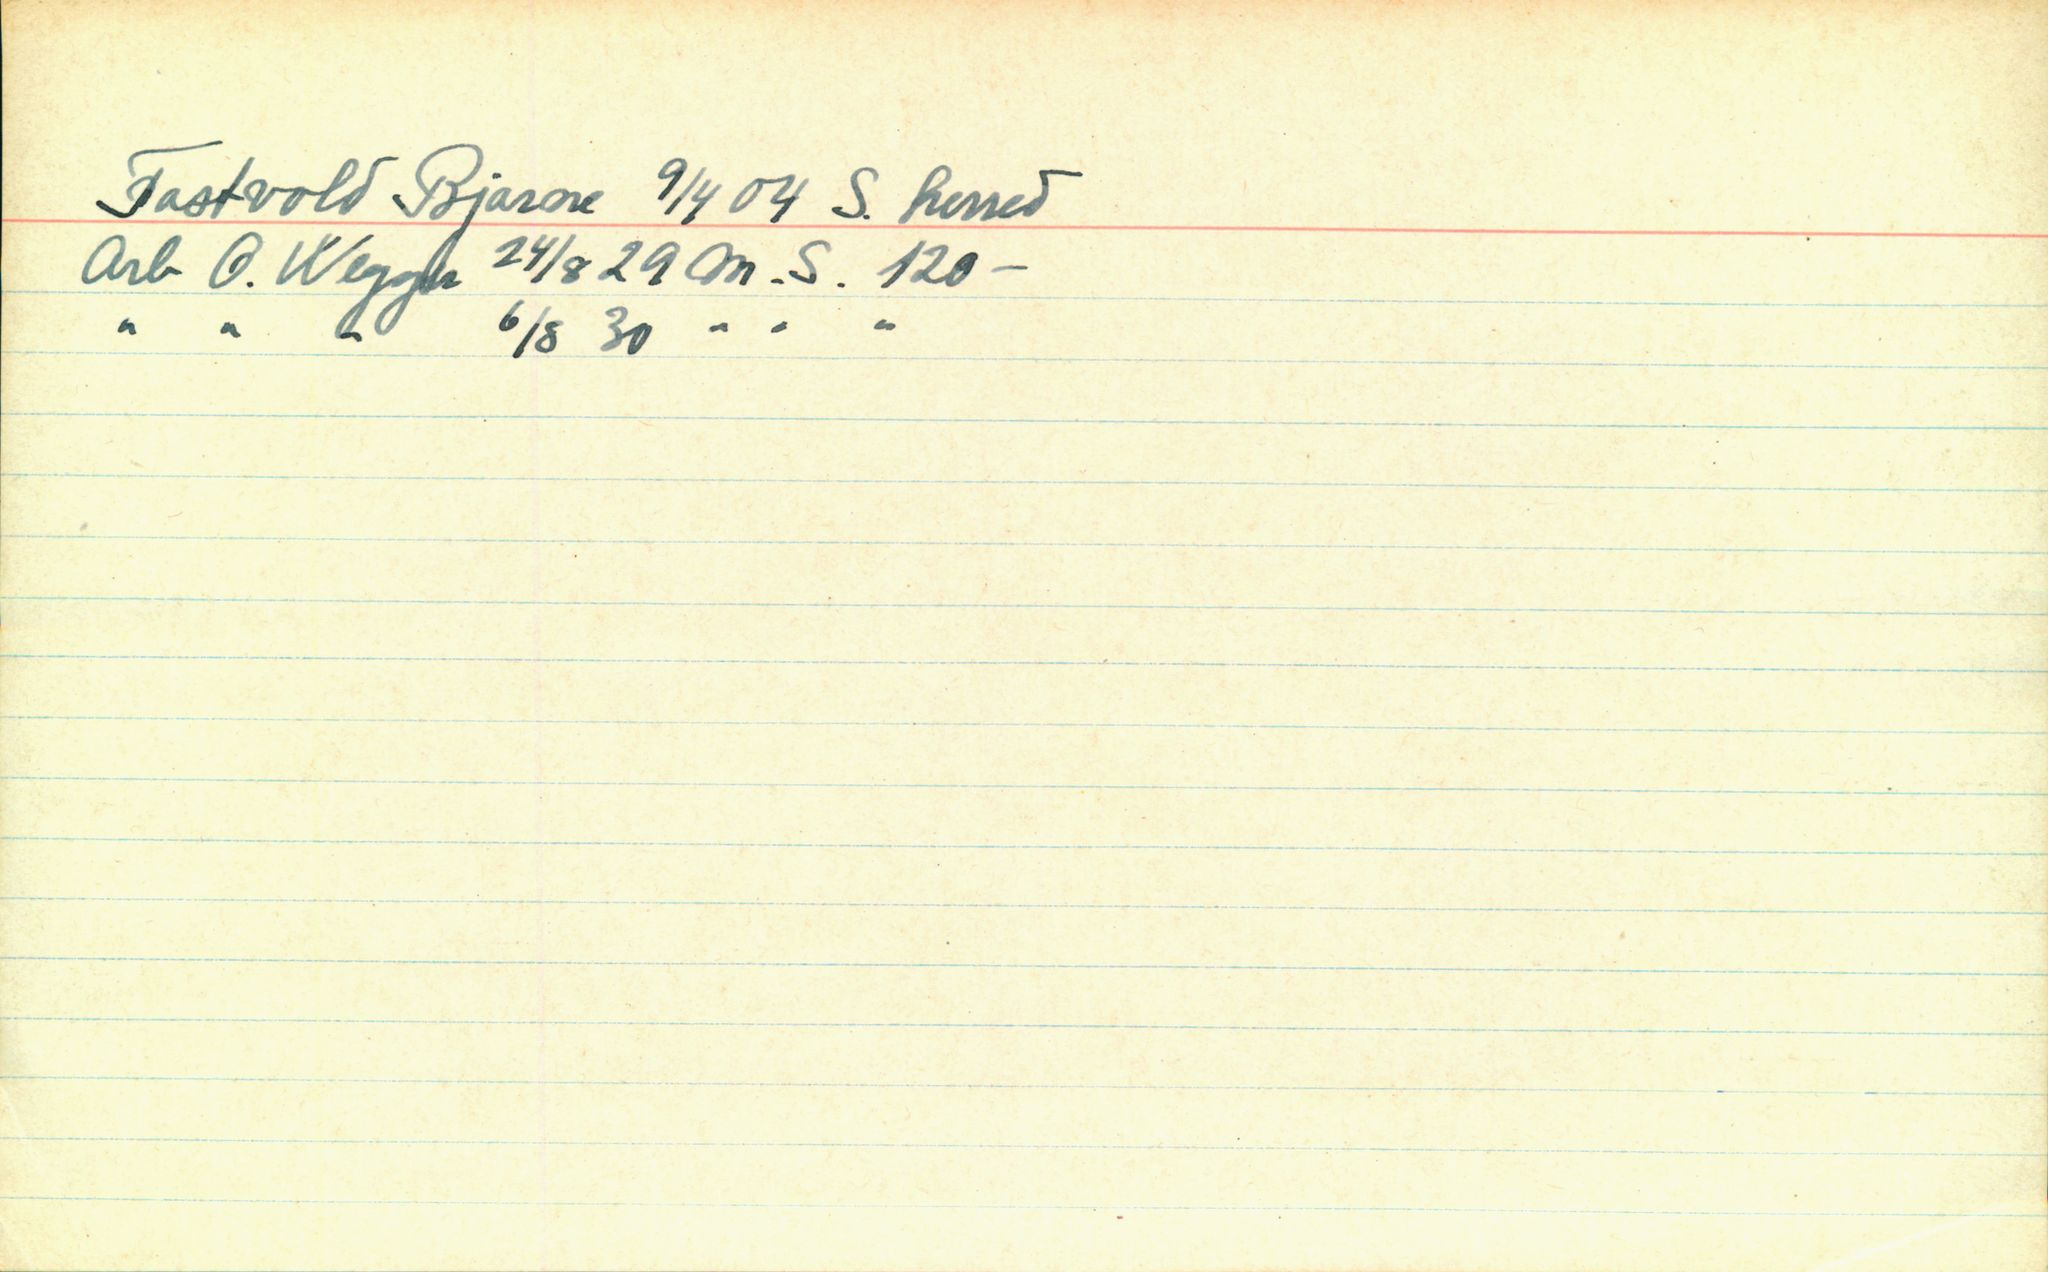 Fastvold Bjarne 9/4 04 S. herred
Arb O. Wegger 24/8 29 M.S. 120 -
" " " 6/8 30 " " "